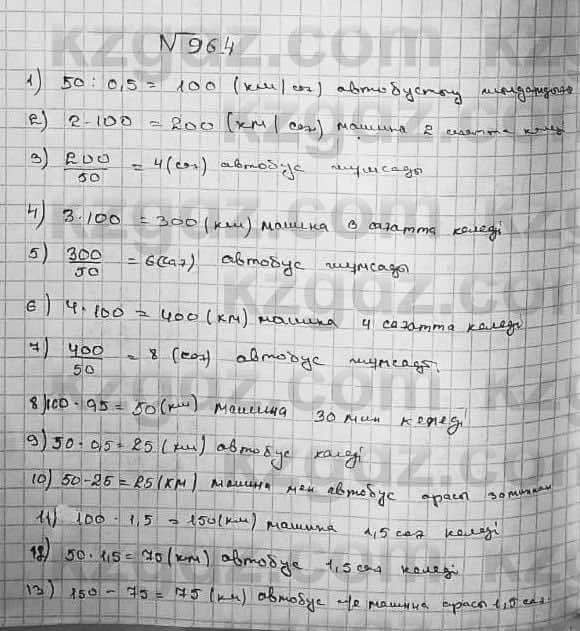 №964
1) 50 : 0,5 = 100 (км/сағ) автобустың
2) 2 · 100 = 200 (км/сағ) машина 2 сағатта келеді
3) 200/50 = 4 (сағ) автобус жұмсады
4) 3 · 100 = 300 (км) машина 3 сағатта келеді
5) 300/50 = 6 (сағ) автобус жұмсады
6) 4 · 100 = 400 (км) машина 4 сағатта келеді
7) 400/50 = 8 (сағ) автобус жұмсады.
8) 100 · 95 = 50 (км) машина 30 мин келеді
9) 50 · 0,5 = 25 (км) автобус келеді
10) 50 - 25 = 25 (км) машина мен автобус арасы 30 минан
11) 100 · 1,5 = 150 (км) машина 1,5 сағ келеді
12) 50 · 1,5 = 70 (км) автобус 1,5 сағ келеді
13) 150 - 75 = 75 (км) автобус пе машина арасы 1,5 сағ.
kzgaz.com
kzgaz.com
kzgaz.com
kzgaz.com